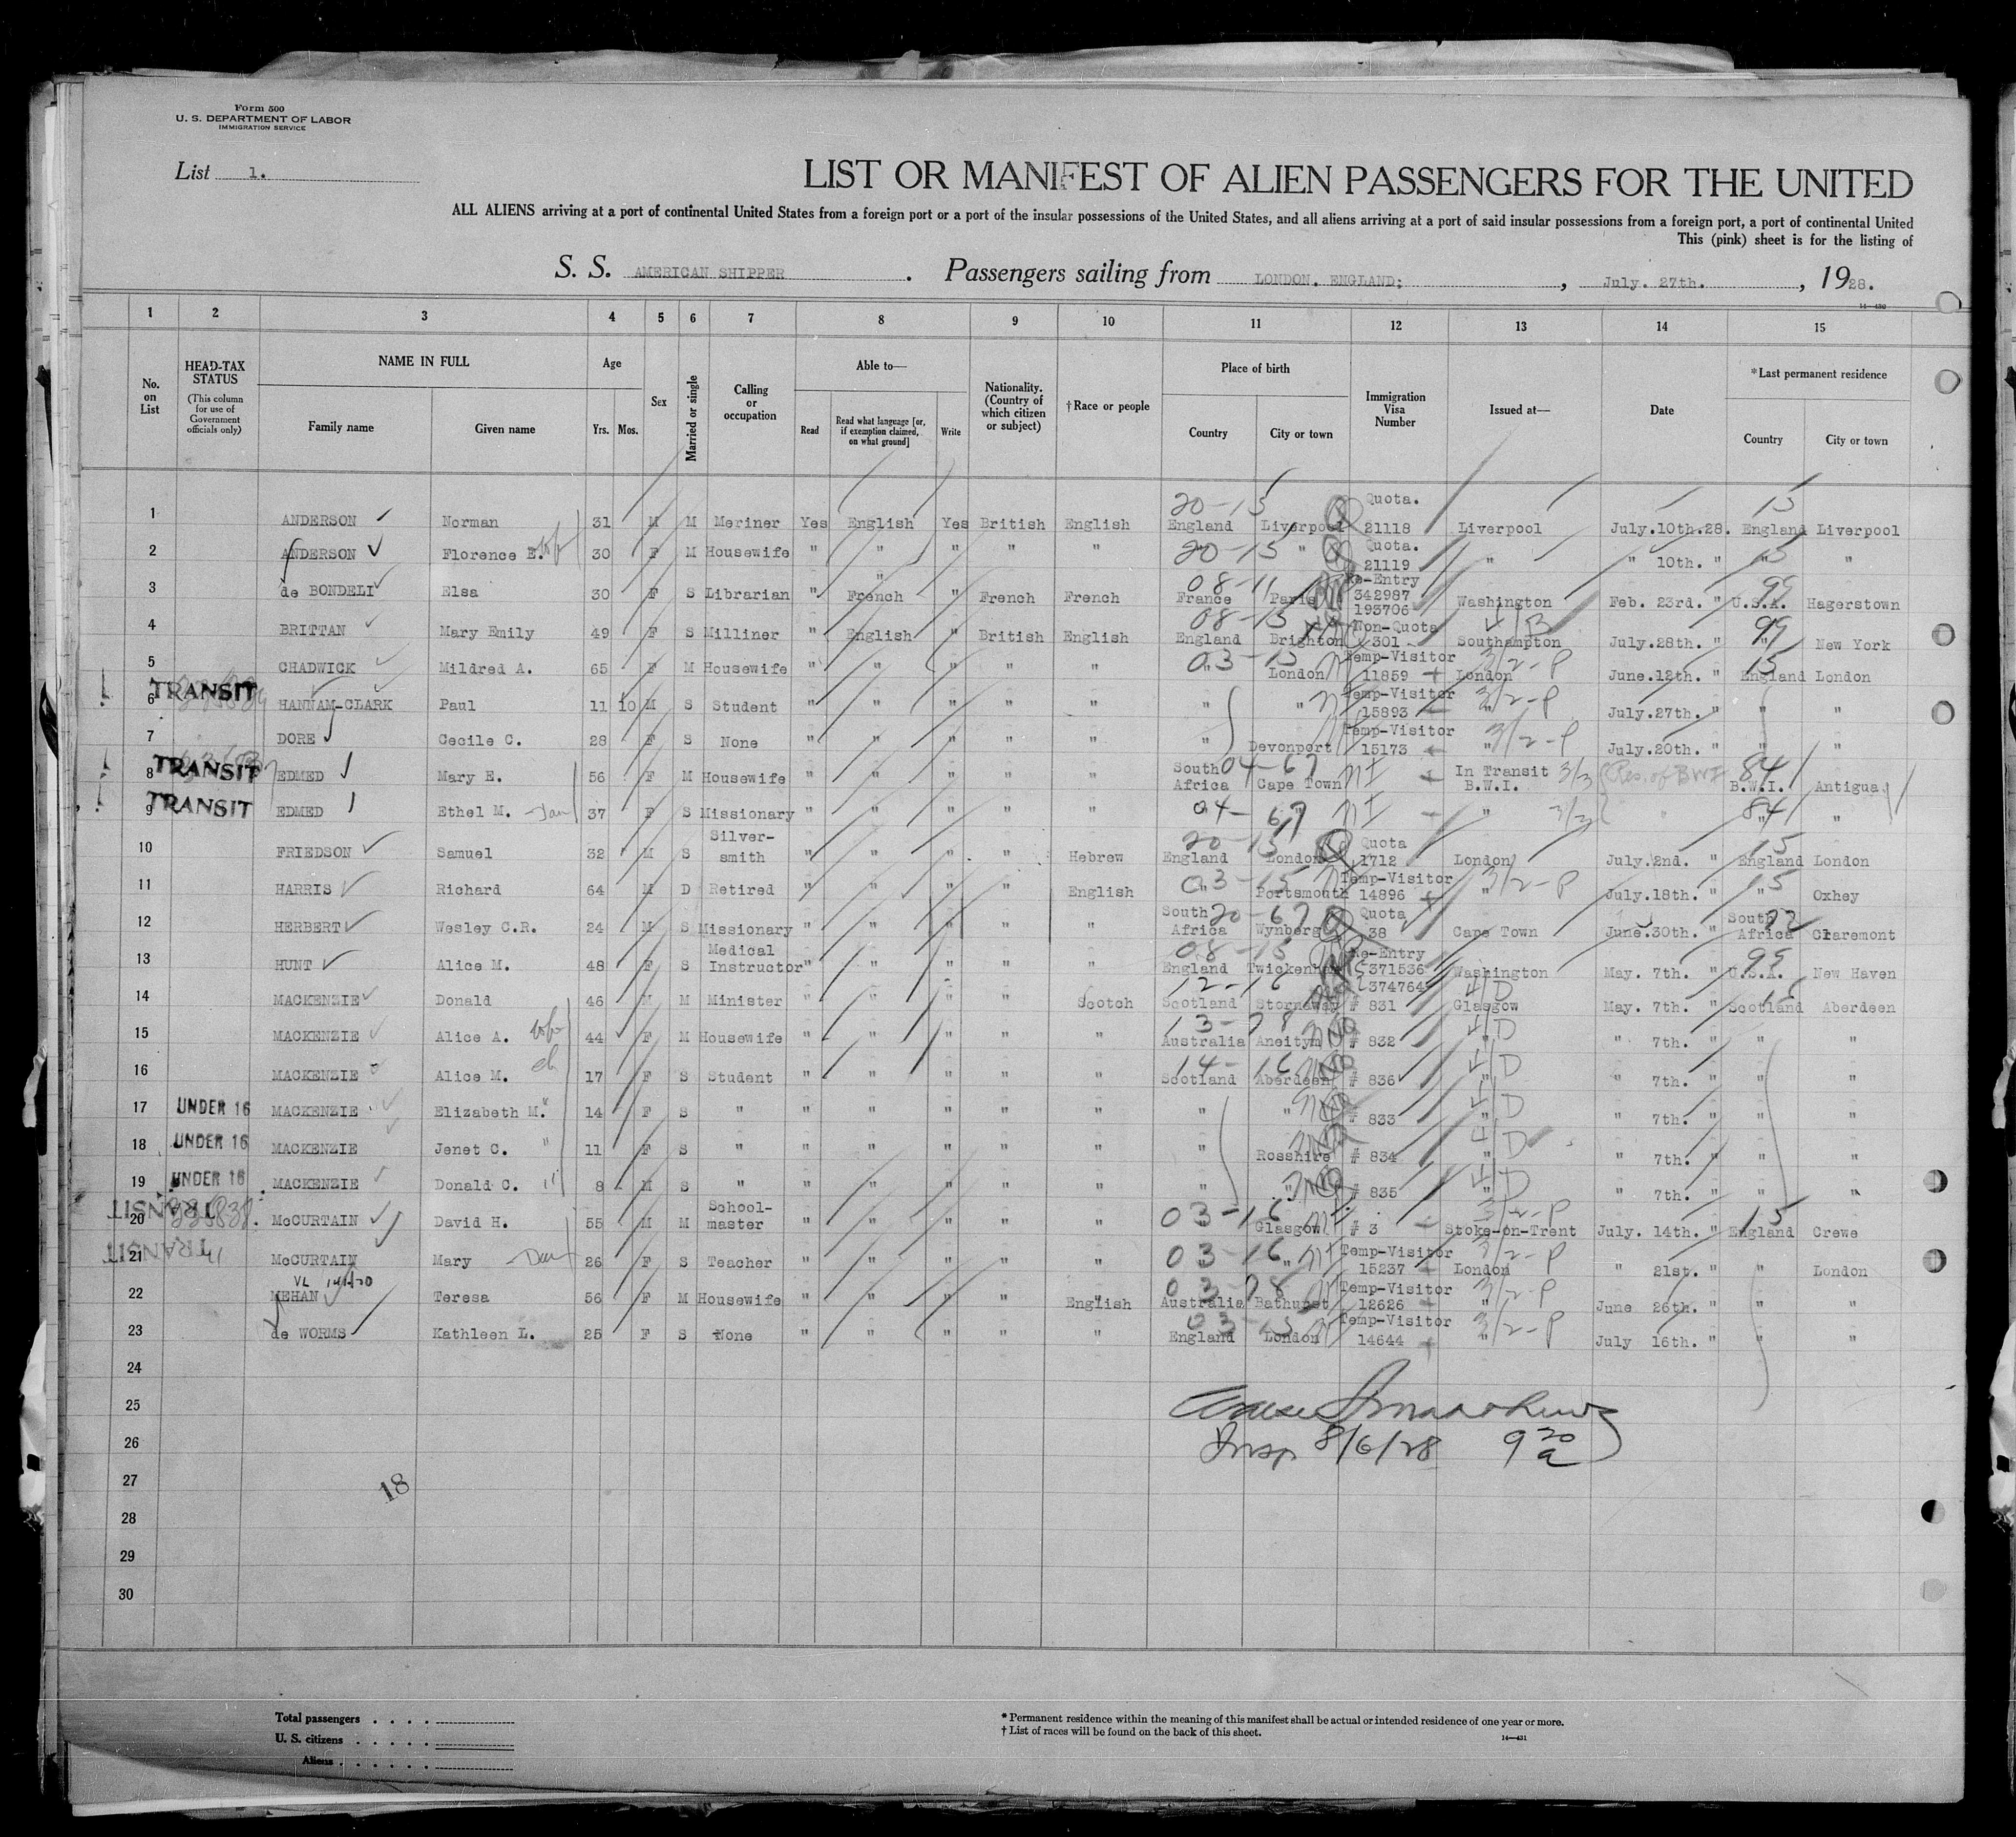 Form 500
U. S. DEPARTMENT OF LABOR
IMMIGRATION SERVICE
List 1.
LIST OR MANIFEST OF ALIEN PASSENGERS FOR THE UNITED
ALL ALIENS arriving at a port of continental United States from a foreign port or a port of the insular possessions of the United States, and all aliens arriving at a port of said insular possessions from a foreign port, a port of continental United
This (pink) sheet is for the listing of
S. S. AMERICAN SHIPPER. Passengers sailing from LONDON. ENGLAND; , July. 27th. , 1928.
14—430
1 2 3 4 5 6 7 8 9 10 11 12 13 14 15
No. on List
HEAD-TAX STATUS (This column for use of Government officials only)
NAME IN FULL Family name Given name
Age Yrs. Mos.
Sex
Married or single
Calling or occupation
Able to— Read Read what language [or, if exemption claimed, on what ground] Write
Nationality. (Country of which citizen or subject)
†Race or people
Place of birth Country City or town
Immigration Visa Number
Issued at—
Date
*Last permanent residence Country City or town
1 ANDERSON Norman 31 M M Meriner Yes English Yes British English 20-15 England Liverpool Quota. 21118 Liverpool July.10th.28. 15 England Liverpool
2 ANDERSON Florence E. wife 30 F M Housewife " " " " " 20-15 " " Quota. 21119 " " 10th. " 15 " "
3 de BONDELI Elsa 30 F S Librarian " French " French French 08-11 France Paris Re-Entry 342987 193706 Washington Feb. 23rd. " 99 U.S.A. Hagerstown
4 BRITTAN Mary Emily 49 F S Milliner " English " British English 08-15 England Brighton Non-Quota 301 Southampton 4/B July.28th. " 99 " New York
5 CHADWICK Mildred A. 65 F M Housewife " " " " " 03-15 " London Temp-Visitor 11859 London 3/2-P June.12th. " 15 England London
TRANSIT
6 HANNAM-CLARK Paul 11 10 M S Student " " " " " " " Temp-Visitor 15893 " 3/2-P July.27th. " " "
7 DORE Cecile C. 28 F S None " " " " " " Devonport Temp-Visitor 15173 " 3/2-P July.20th. " " "
TRANSIT
8 EDMED Mary E. 56 F M Housewife " " " " " 04-67 South Africa Cape Town In Transit B.W.I. 3/3 Res. of BWI 84 B.W.I. Antigua
TRANSIT
9 EDMED Ethel M. 37 F S Missionary " " " " " 04-67 " " " 3/3 84 " "
10 FRIEDSON Samuel 32 M S Silver-smith " " " " Hebrew 20-15 England London Quota 1712 London July.2nd. " 15 England London
11 HARRIS Richard 64 M D Retired " " " " English 03-15 " Portsmouth Temp-Visitor 14896 " 3/2-P July.18th. " 15 " Oxhey
12 HERBERT Wesley C.R. 24 M S Missionary " " " " " 20-67 South Africa Wynberg Quota 38 Cape Town June.30th. " South Africa Claremont
13 HUNT Alice M. 48 F S Medical Instructor " " " " " 08-15 England Twickenham Re-Entry 371536 374764 Washington May. 7th. " 99 U.S.A. New Haven
14 MACKENZIE Donald 46 M M Minister " " " " Scotch 12-16 Scotland Stornaway # 831 Glasgow 4/D May. 7th. " 16 Scotland Aberdeen
15 MACKENZIE Alice A. wife 44 F M Housewife " " " " " 13-78 Australia Aneitym # 832 " 4/D " 7th. " " "
16 MACKENZIE Alice M. ch 17 F S Student " " " " " 14-16 Scotland Aberdeen # 836 " 4/D " 7th. " " "
17 UNDER 16 MACKENZIE Elizabeth M. " 14 F S " " " " " " " " # 833 " 4/D " 7th. " " "
18 UNDER 16 MACKENZIE Jenet C. " 11 F S " " " " " " " Rosshire # 834 " 4/D " 7th. " " "
19 UNDER 16 MACKENZIE Donald C. " 8 M S " " " " " " " " # 835 " 4/D " 7th. " " "
TRANSIT
20 McCURTAIN David H. 55 M M School-master " " " " " 03-16 " Glasgow # 3 Stoke-on-Trent 3/2-P July. 14th. " 15 England Crewe
TRANSIT
21 McCURTAIN Mary 26 F S Teacher " " " " " 03-16 " " Temp-Visitor 15237 London 3/2-P " 21st. " " London
22 MEHAN Teresa 56 F M Housewife " " " " English 03-78 Australia Bathurst Temp-Visitor 12626 " 3/2-P June 26th. " " "
23 de WORMS Kathleen L. 25 F S None " " " " " 03-15 England London Temp-Visitor 14644 " 3/2-P July 16th. " " "
24
25
26 Insp 8/6/28 9 20 a
27
18
28
29
30
Total passengers . . . .
U. S. citizens . . . . .
Aliens . . . . . .
* Permanent residence within the meaning of this manifest shall be actual or intended residence of one year or more.
† List of races will be found on the back of this sheet.
14—431